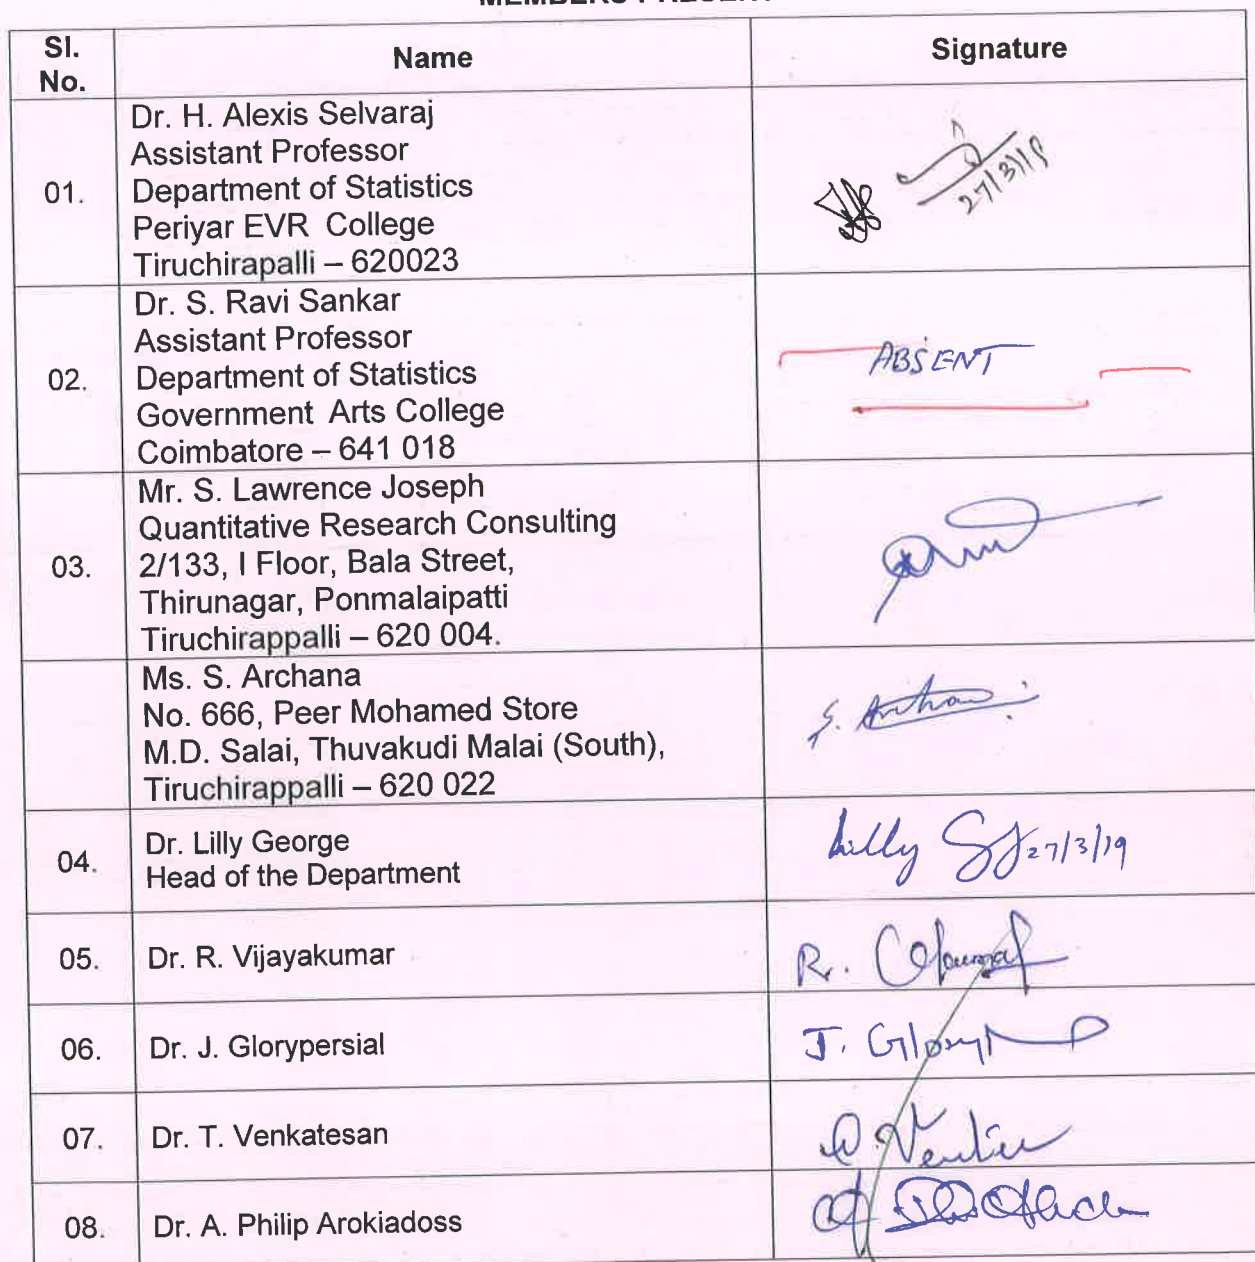 Sl. No.
Name
Signature
01.
Dr. H. Alexis Selvaraj
Assistant Professor
Department of Statistics
Periyar EVR College
Tiruchirapalli – 620023
27/3/19
02.
Dr. S. Ravi Sankar
Assistant Professor
Department of Statistics
Government Arts College
Coimbatore – 641 018
ABSENT
03.
Mr. S. Lawrence Joseph
Quantitative Research Consulting
2/133, I Floor, Bala Street,
Thirunagar, Ponmalaipatti
Tiruchirappalli – 620 004.
Ms. S. Archana
No. 666, Peer Mohamed Store
M.D. Salai, Thuvakudi Malai (South),
Tiruchirappalli – 620 022
S.
04.
Dr. Lilly George
Head of the Department
Lilly 27/3/19
05.
Dr. R. Vijayakumar
R.
06.
Dr. J. Glorypersial
J. Glory
07.
Dr. T. Venkatesan
08.
Dr. A. Philip Arokiadoss